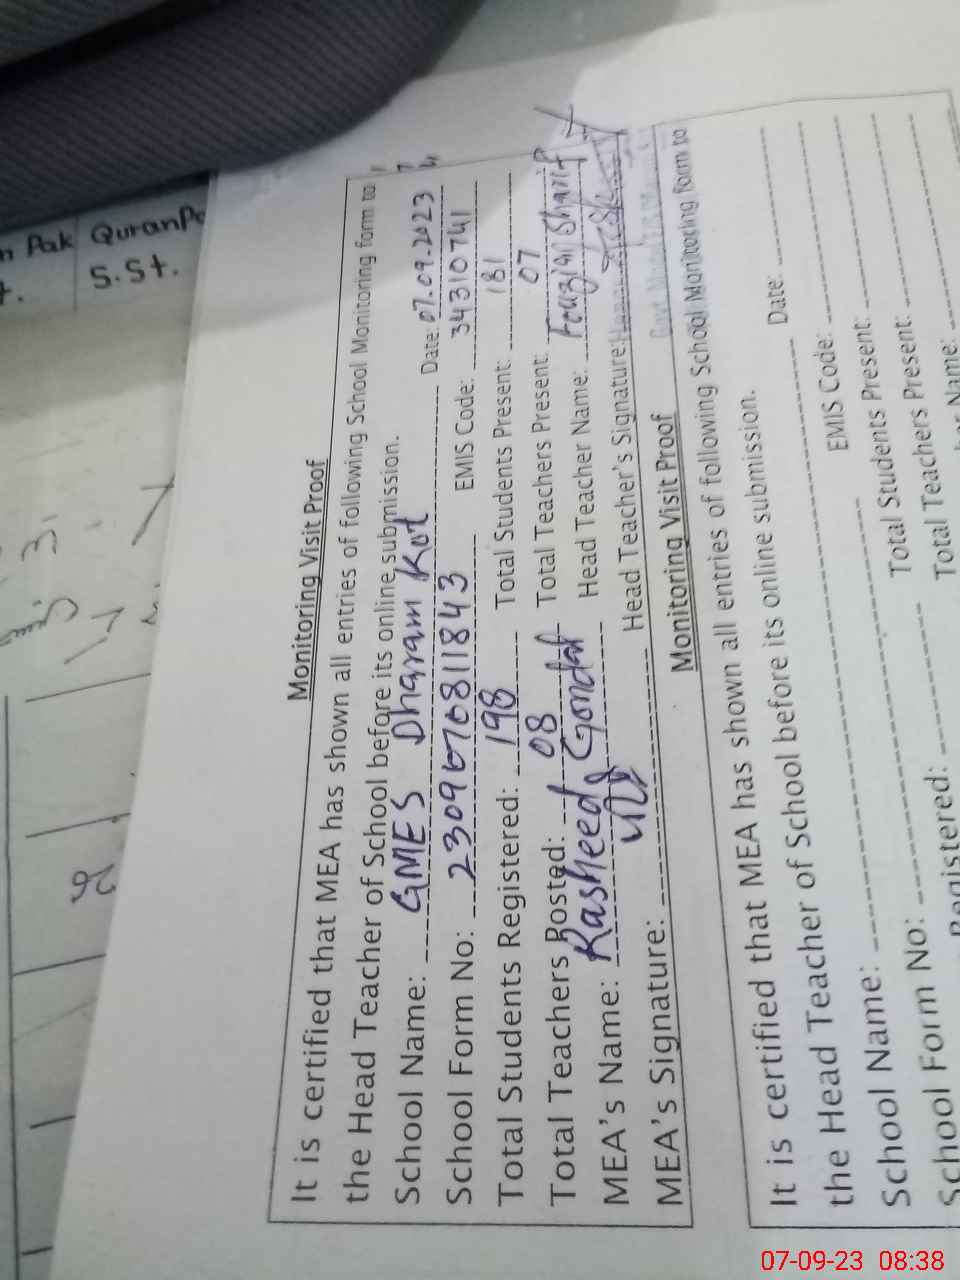 Monitoring Visit Proof
It is certified that MEA has shown all entries of following School Monitoring form to
the Head Teacher of School before its online submission.
School Name: GMES Dharam Kot Date: 07.09.2023
School Form No: 23096708 11843 EMIS Code: 34310741
Total Students Registered: 198 Total Students Present: 181
Total Teachers Posted: 08 Total Teachers Present: 07
MEA's Name: Rasheed Gondal Head Teacher Name: Fouzia Sharif
MEA's Signature: Head Teacher's Signature:
Monitoring Visit Proof
It is certified that MEA has shown all entries of following School Monitoring Form to
the Head Teacher of School before its online submission.
School Name: Date:
School Form No: EMIS Code:
Registered: Total Students Present:
Total Teachers Present:
Name:
Pak
Quran
S.St.
26
07-09-23 08:38